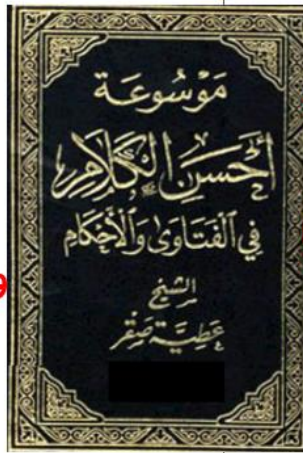 مَوْسُوعَة
أحْسَن الكَلَام
في الفَتَاوى وَالأحْكام
الشيخ
عَطِيَّة صَقر
9